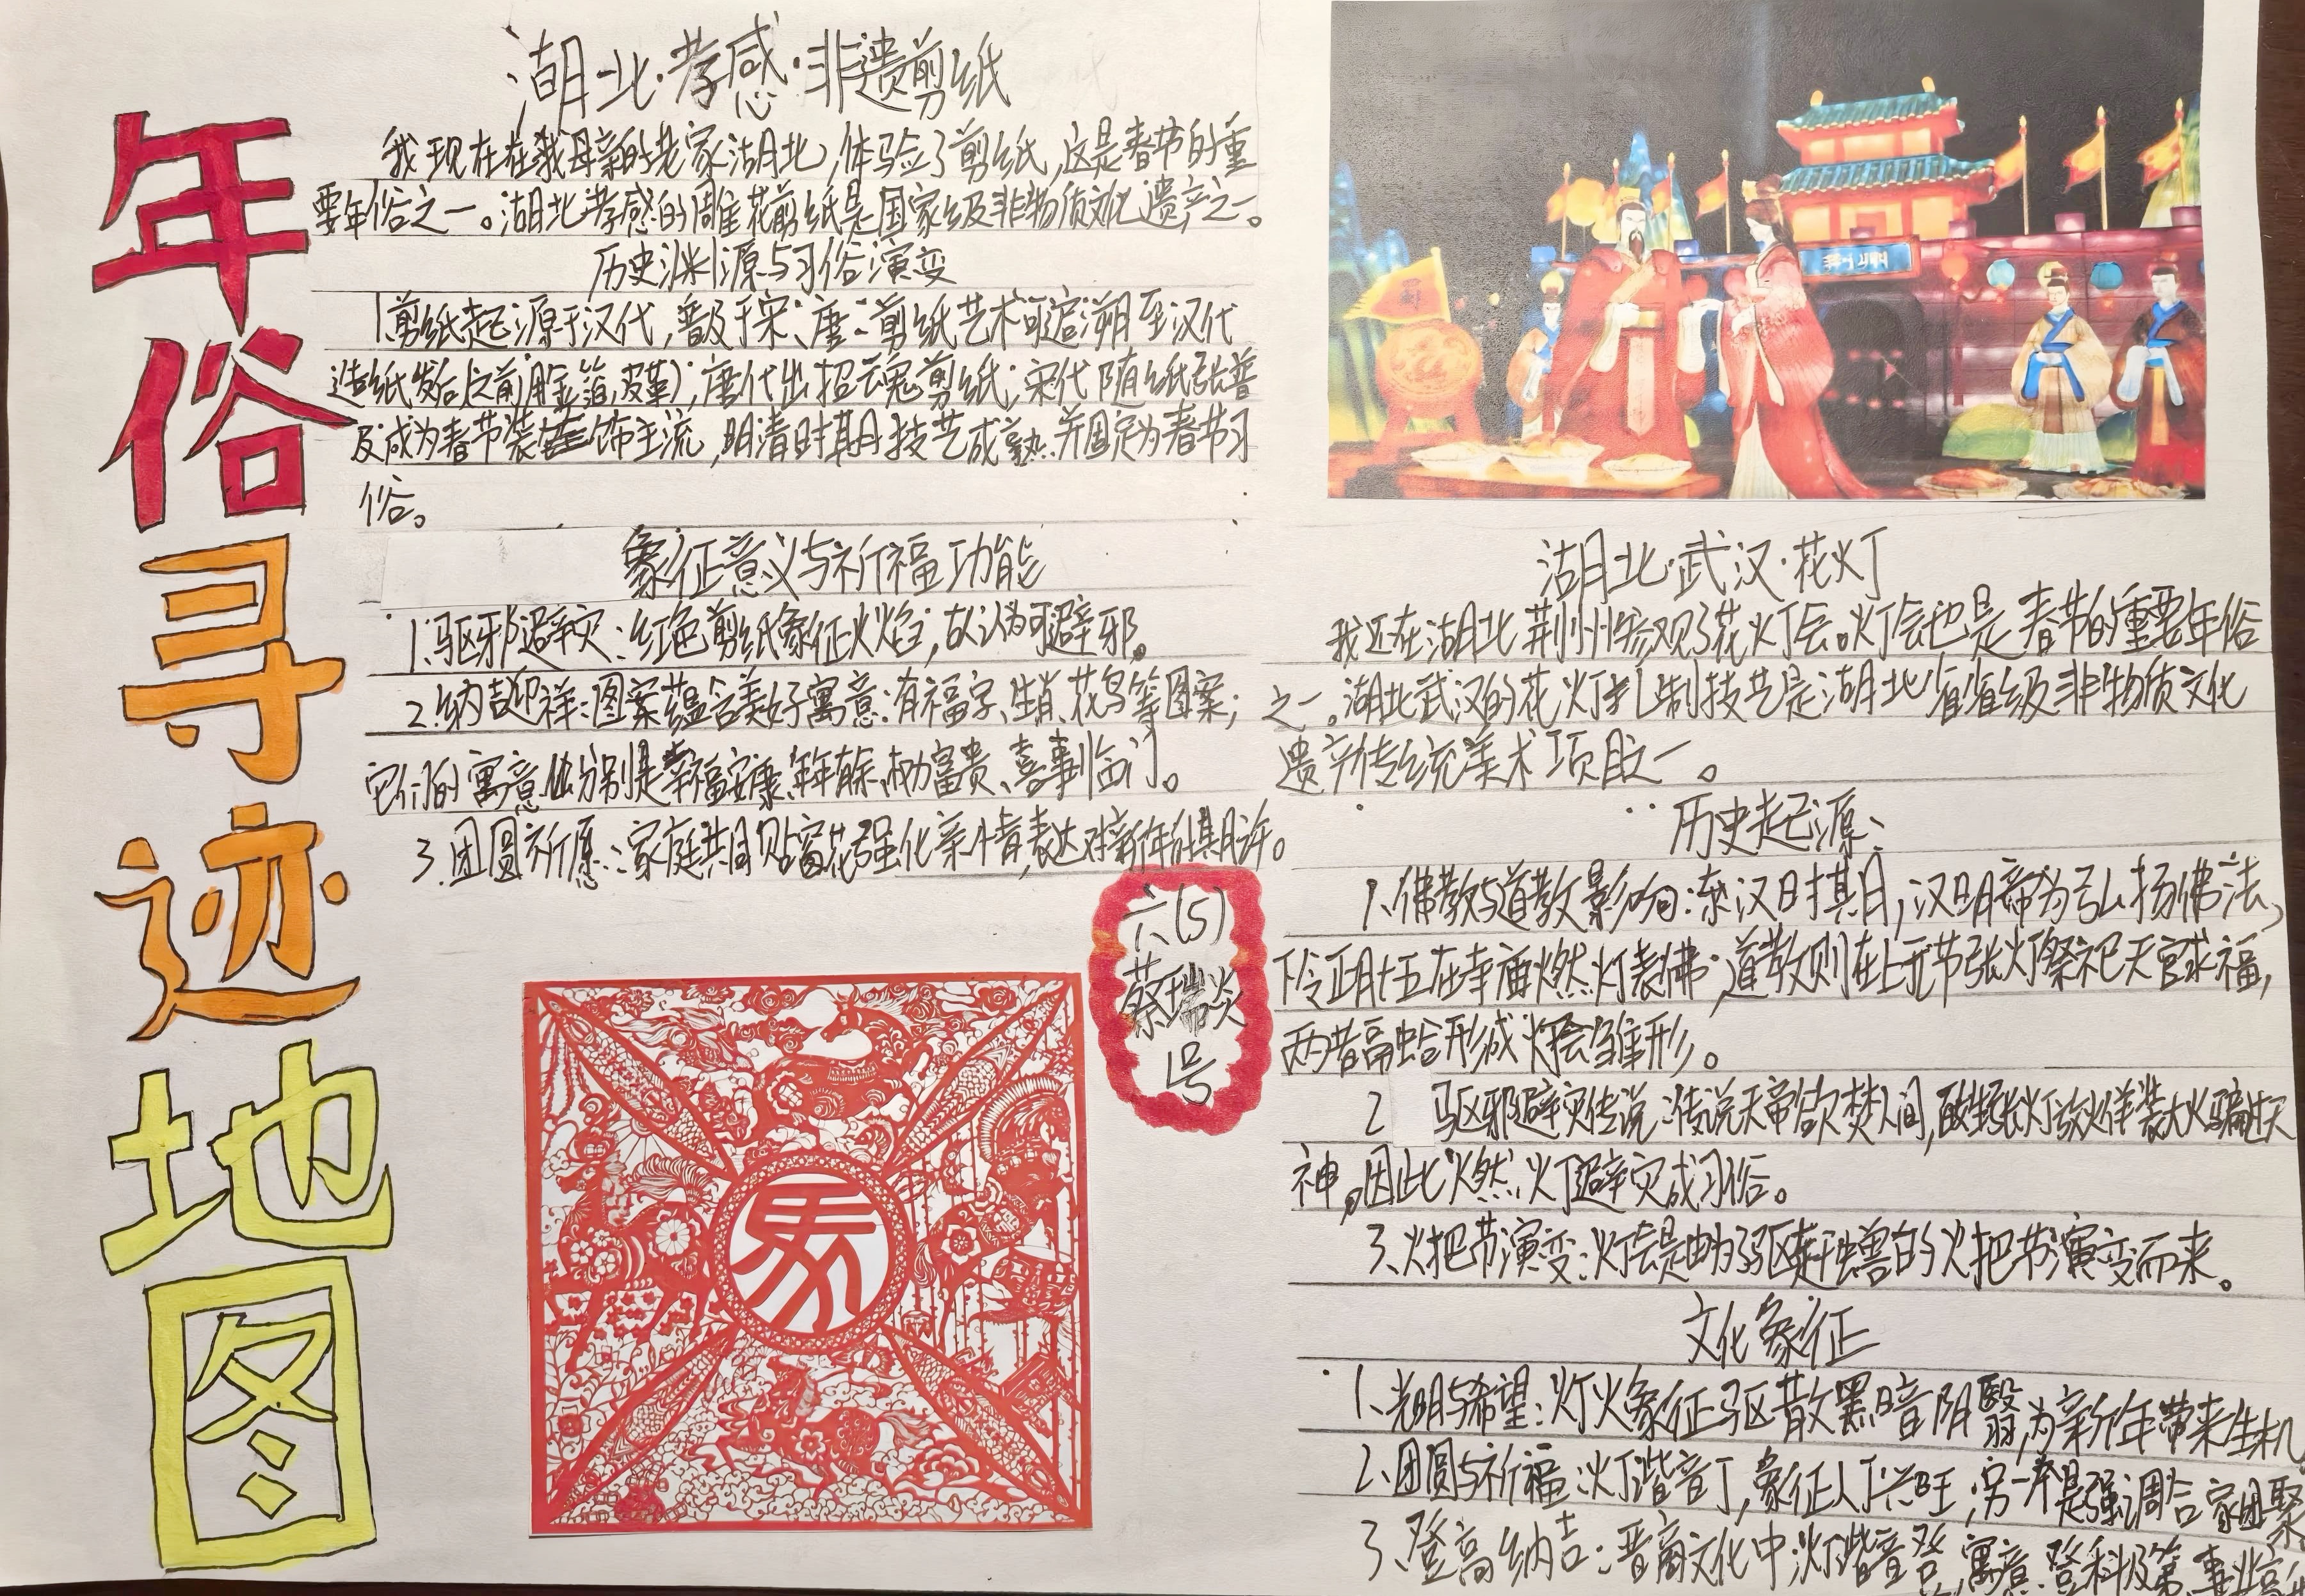 年俗寻迹地图
湖北·孝感·非遗剪纸
我现在在我母亲的老家湖北,体验了剪纸,这是春节的重
要年俗之一。湖北孝感的雕花剪纸是国家级非物质文化遗产之一。
历史渊源与习俗演变
1.剪纸起源于汉代,普及于宋、唐:剪纸艺术可追溯至汉代
造纸发后(之前用金箔,皮革);唐代出招魂剪纸;宋代随纸张普
及成为春节装饰主流,明清时期技艺成熟并固定为春节习
俗。
象征意义与祈福功能
1.驱邪避灾:红色剪纸象征火焰,故认为可避邪。
2.纳吉迎祥:图案蕴含美好寓意:有福字、生肖、花鸟等图案;
它们的寓意也分别是幸福安康、年年有余、富贵、喜事临门。
3.团圆祈愿:家庭共同贴窗花强化亲情,表达对新年的期许。
六(5)
蔡瑞炎
1号
馬
湖北·武汉·花灯
我还在湖北荆州参观了花灯会。灯会也是春节的重要年俗
之一。湖北武汉的花灯扎制技艺是湖北省省级非物质文化
遗产传统美术项目之一。
历史起源:
1.佛教与道教影响:东汉时期,汉明帝为弘扬佛法,
下令正月十五在寺庙燃灯表佛;道教则在上元节张灯祭祀天官求福,
两者融合形成灯会雏形。
2 驱邪避灾传说:传说天帝欲焚人间,百姓张灯放火佯装大火骗过天
神,因此燃灯避灾成习俗。
3、火把节演变:灯会是由为驱赶虫兽的火把节演变而来。
文化象征
1、光明与希望:灯火象征驱散黑暗阴翳,为新年带来生机
2、团圆与祈福:灯谐音丁,象征人丁兴旺,另一半是强调合家团聚
3、登高纳吉:晋商文化中,灯谐音登,寓意登科及第、事业高